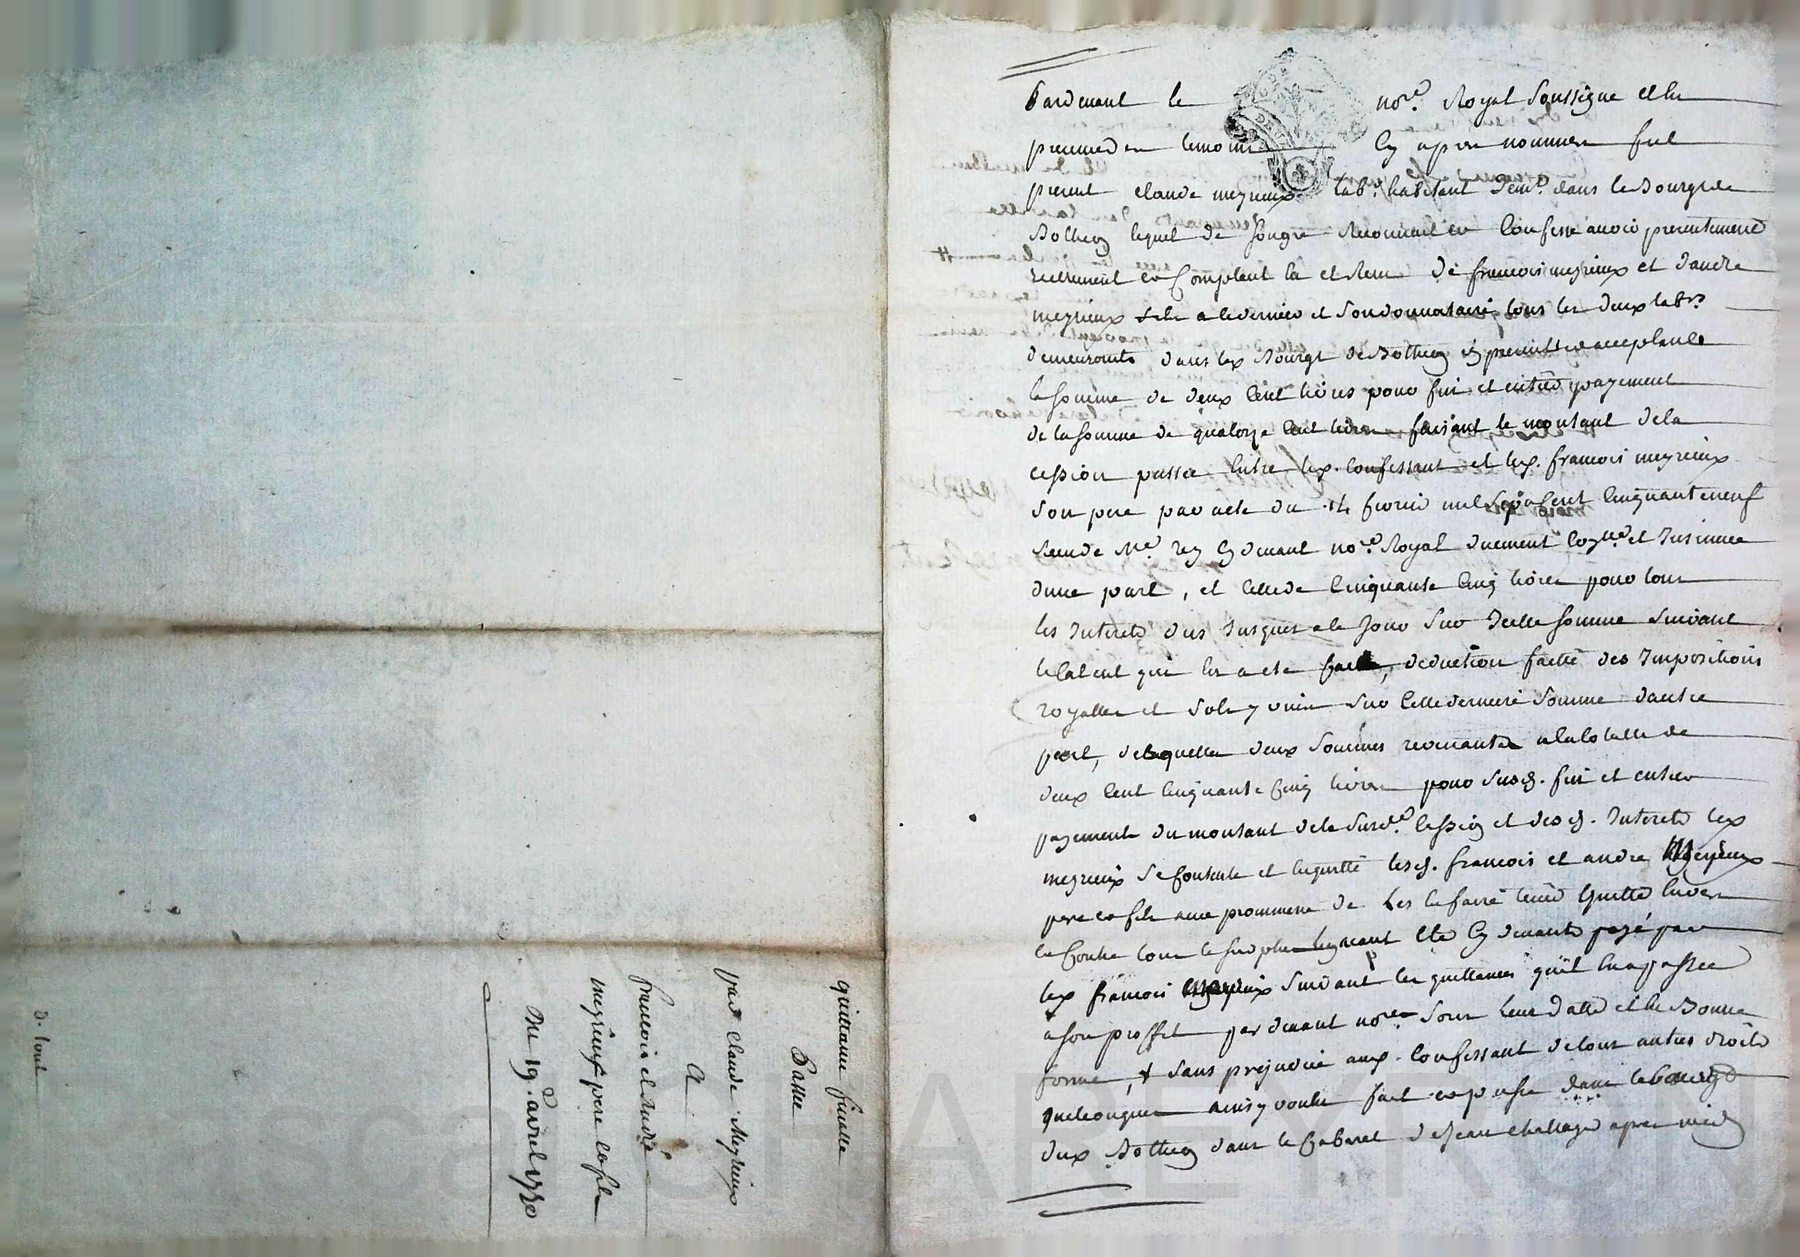 Pardevant le no.re Royal soussigné et les
presence des temoins cy apres nommés fut
present claude meyrieux lab.r habitant dem.t dans le Bourg de
Bothéon lequel de son gré reconnait et confesse avoir presentement
reellement et Comptant eu et Recu de francois meyrieux et d'andre
meyrieux fils a ce dernier et son donnataire tous les deux lab.rs
demeurants dans led. Bourgt de Bothéon icy presents et acceptants
la somme de deux Cent livres pour fin et entier payement
de la somme de quatorze Cent livres faisant le montant de la
cession passée Entre led. Confessant et led. francois meyrieux
son pere par acte du 14 fevrier mil sept Cent Cinquante neuf
Recu de M.e rey cy devant no.re Royal duement et Insinuée
d'une part, et Celle de Cinquante Cinq livres pour tous
les Interets dus Jusques a ce Jour sur Icelle somme suivant
le Calcul qui en a été fait, deduction faitte des Impositions
royalles et sols y unis sur Cette derniere somme d'autre
part, desquelles deux sommes revenantes a la totalle de
deux Cent Cinquante Cinq livres pour susd. fin et entier
payement du montant de la susd.e Cession et desd. Interets led.
meyrieux se Contente et en quitte lesd. francois et andre Meyrieux
pere et fils avec promesse de Les en faire tenir Quitte Envers
et Contre tous le surplus ayant été cy devant payé par
led. francois meyrieux suivant les quittances qu'il en a passées
a son proffit par devant no.res sous leur datte et en Bonne
forme, & sans prejudice aud. Confessant de tous autres droits
quelconques ainsy voulu fait et passé dans le bourg
dud. Bothéon dans le Cabaret de Jean apres midy
quittance finalle
Passée
par Claude Meyrieux
A
francois et André
meyrieux pere et fils
Du 19.e avril 1780